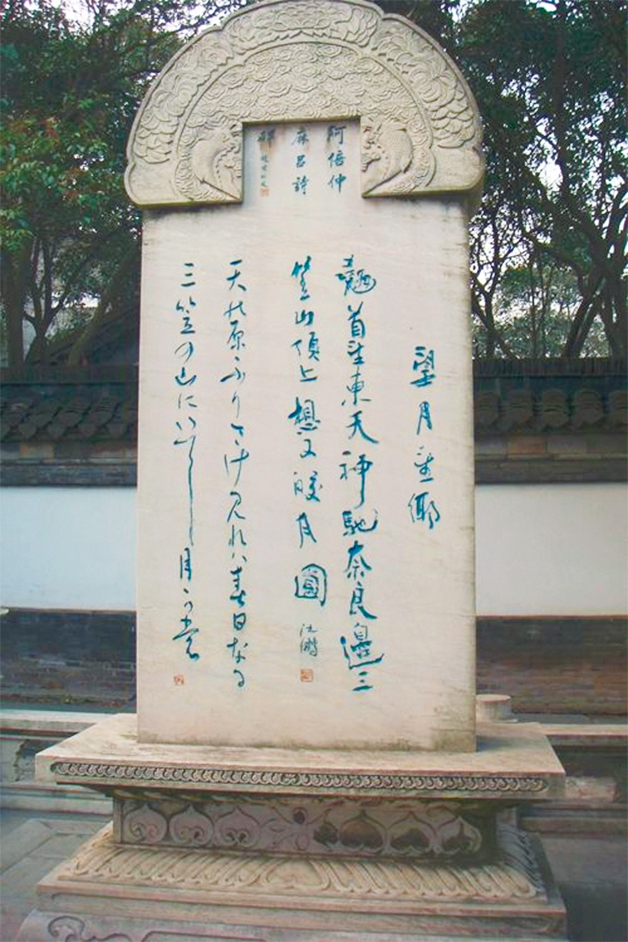 阿倍仲
麻呂詩
碑
望月望鄉
翹首望東天神馳奈良邊三
笠山頂上想又皎月圓 沈鵬
天の原ふりさけ見れハ春日なる
三笠の山にいでし月